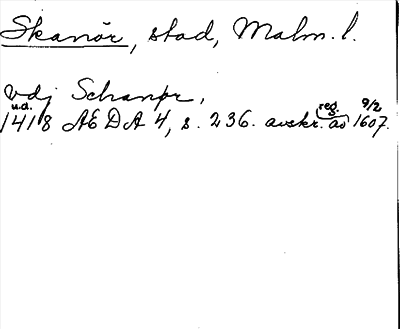 Skanör, stad, Malm. l.
vdj Schanør,
u.d. reg. 9/2
1418 AEDA 4, s. 236. avskr. av 1607.